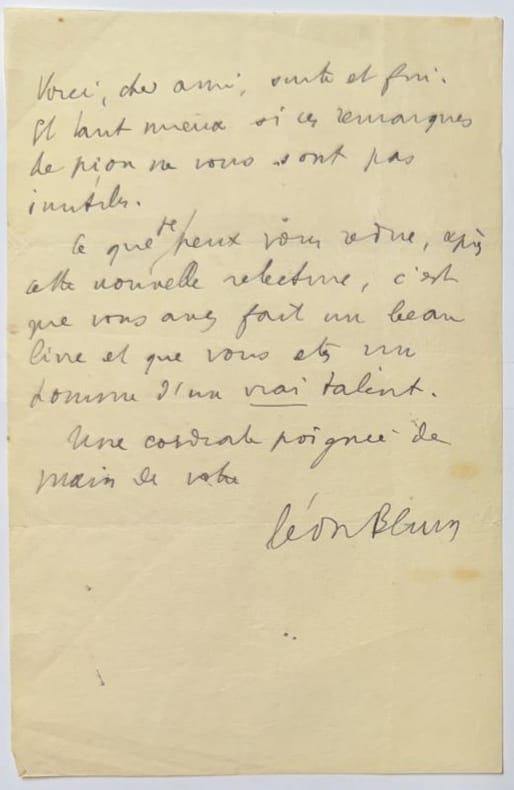 Voici, cher ami, suite et fin.
Et tant mieux si ces remarques
de pion ne vous sont pas
inutiles.
Ce que je peux vous redire, après
cette nouvelle relecture, c'est
que vous avez fait un beau
livre et que vous êtes un
homme d'un vrai talent.
Une cordiale poignée de
main de votre
Léon Blum